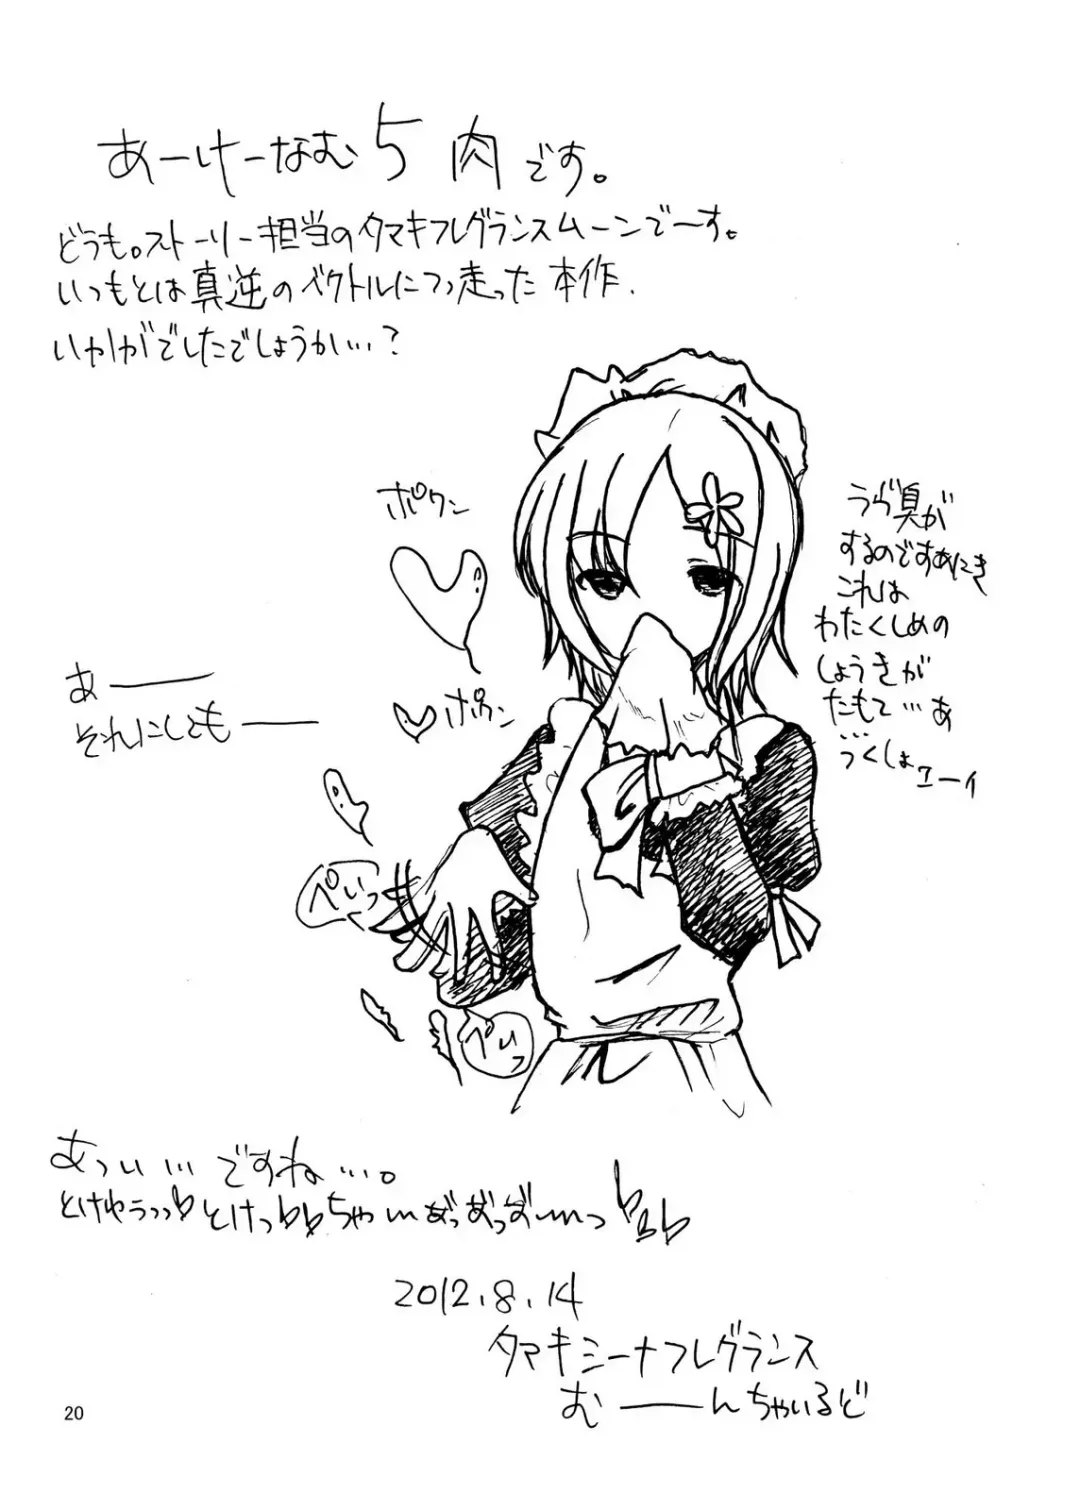 あーけーなむ5肉です。
どうも。ストーリー担当のタマキフレグランスムーンでーす。
いつもとは真逆のベクトルにつっ走った本作、
いかがでしたでしょうか…?
ポワン
ポワン
うら臭が
するのですあにき
これは
わたくしめの
しょうきが
たもて…あ
…
つくしょ
ユーイ
あー
それにしてもー
ぺいっ
ぺいっ
あつい…ですね…。
2012.8.14
タマキミーナフレグランス
むーんちゃいるど
20